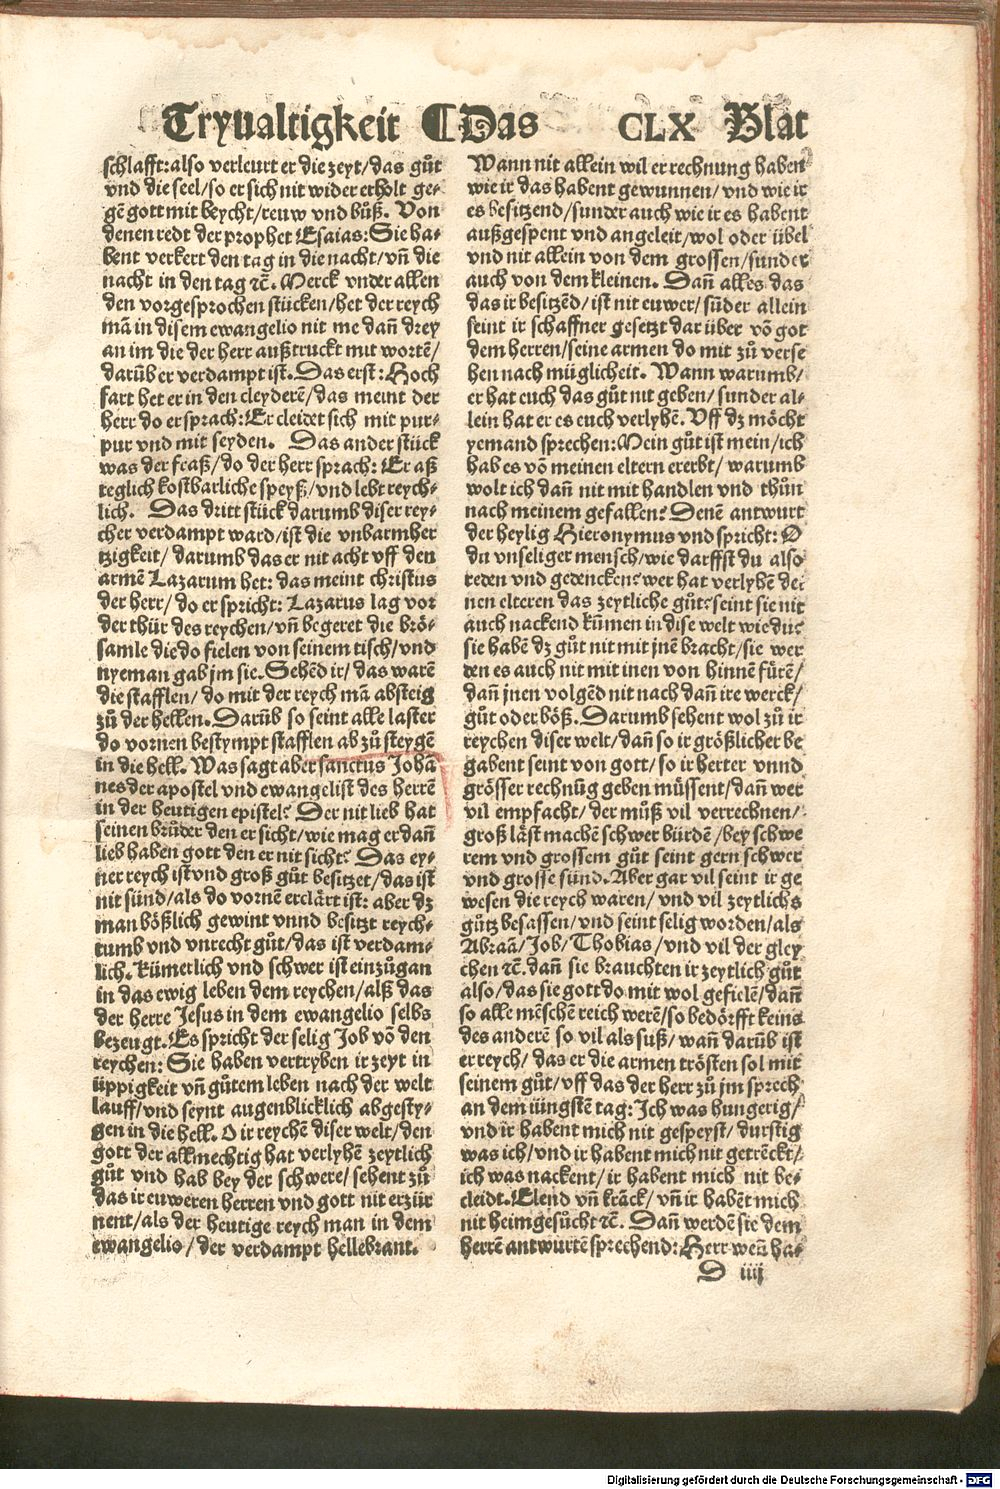 Tryualtigkeit ¶Das CLX Blat
schlafft:also verleurt er die zeyt/das gůt
vnd die seel/so er sich nit wider erholt ge⸗
gē gott mit beycht/reuw vnd bůß. Von
denen redt der prophet Esaias:Sie ha⸗
bent verkert den tag in die nacht/vñ die
nacht in den tag ⁊c̄. Merck vnder allen
den vorgesprochen stücken/het der reych
mā in disem ewangelio nit me dañ drey
an im die der herr außtruckt mit wortē/
darüb er verdampt ist. Das erst:Hoch
fart het er in den cleyderē/das meint der
herr do er sprach:Er cleidet sich mit pur⸗
pur vnd mit seyden. Das ander stück
was der fraß/do der herr sprach: Er aß
teglich kostbarliche speyß/vnd lebt reych⸗
lich. Das dritt stück darumb diser rey⸗
cher verdampt ward/ist die vnbarmher
tzigkeit/ darumb das er nit acht vff den
armē Lazarum het: das meint christus
der herr/ do er spricht: Lazarus lag vor
der thür des reychen/vñ begeret die brö⸗
samle die do fielen von seinem tisch/vnd
nyeman gab jm sie. Sehēd ir/ das warē
die stafflen/ do mit der reych mā absteig
zů der hellen. Darüb so seint alle laster
do vornen bestympt stafflen ab zů steygē
in die hell. Was sagt aber sanctus Johā
nes der apostel vnd ewangelist des herrē
in der heutigen epistel? Der nit lieb hat
seinen brůder den er sicht/wie mag er dañ
lieb haben gott den er nit sicht? Das ey⸗
ner reych ist vnd groß gůt besitzet/das ist
nit sünd/als do vornē erclärt ist: aber dz
man bößlich gewint vnnd besitzt reych⸗
tumb vnd vnrecht gůt/das ist verdam⸗
lich. Kümerlich vnd schwer ist einzůgan
in das ewig leben dem reychen/alß das
der herre Jesus in dem ewangelio selbs
bezeugt. Es spricht der selig Job vō den
reychen: Sie haben vertryben ir zeyt in
üppigkeit vñ gůtem leben nach der welt
lauff/vnd seynt augenblicklich abgesty⸗
gen in die hell. O ir reychē diser welt/den
gott der allmechtig hat verlyhē zeytlich
gůt vnd hab bey der schwere/sehent zů
das ir euweren herren vnd gott nit erzür
nent/als der heutige reych man in dem
ewangelio/ der verdampt hellebrant.
Wann nit allein wil er rechnung haben
wie ir das habent gewunnen/ vnd wie ir
es besitzend/sunder auch wie ir es habent
außgespent vnd angeleit/wol oder übel
vnd nit allein von dem grossen/sunder
auch von dem kleinen. Dañ alles das
das ir besitzēd/ist nit euwer/sūder allein
seint ir schaffner gesetzt dar über vō got
dem herren/seine armen do mit zů verse
hen nach müglicheit. Wann warumb/
er hat euch das gůt nit geben/ sunder al⸗
lein hat er es euch verlyhē. Vff dz möcht
yemand sprechen:Mein gůt ist mein/ich
hab es vō meinen eltern ererbt/ warumb
wolt ich dañ nit mit handlen vnd thůn
nach meinem gefallen? Denē antwurt
der heylig Hieronymus vnd spricht: O
du vnseliger mensch/wie darffst du also
reden vnd gedencken? wer hat verlyhē dei
nen elteren das zeytliche gůt? seint sie nit
auch nackend kūmen in dise welt wie du?
sie habē dz gůt nit mit jnē bracht/sie wer
den es auch nit mit inen von hinnē fürē/
dañ jnen volgēd nit nach dañ ire werck/
gůt oder böß. Darumb sehent wol zů ir
reychen diser welt/dañ so ir größlicher be
gabent seint von gott/so ir herter vnnd
grösser rechnūg geben müssent/dañ wer
vil empfacht/ der můß vil verrechnen/
groß läst machē schwer bürdē/bey schwe
rem vnd grossem gůt seint gern schwer
vnd grosse sünd. Aber gar vil seint ir ge
wesen die reych waren/ vnd vil zeytlichs
gůtz besassen/vnd seint selig worden/als
Abraā/ Job/ Thobias/vnd vil der gley
chen ⁊c̄. dañ sie brauchten ir zeytlich gůt
also/das sie gott do mit wol gefielē/dañ
so alle mēschē reich werē/so bedörfft keins
des anderē so vil als suß/ wañ darüb ist
er reych/ das er die armen trösten sol mit
seinem gůt/vff das der herr zů jm sprech
an dem iüngstē tag: Ich was hungerig/
vnd ir habent mich nit gespeyst/ durstig
was ich/vnd ir habent mich nit getrēckt/
ich was nackent/ ir habent mich nit be⸗
cleidt. Elend vñ krāck/ vñ ir habēt mich
nit heimgesůcht ⁊c̄. Dañ werdē sie dem
herrē antwurtē sprechend: Herr weñ ha⸗
D iiij
Digitalisierung gefördert durch die Deutsche Forschungsgemeinschaft - DFG